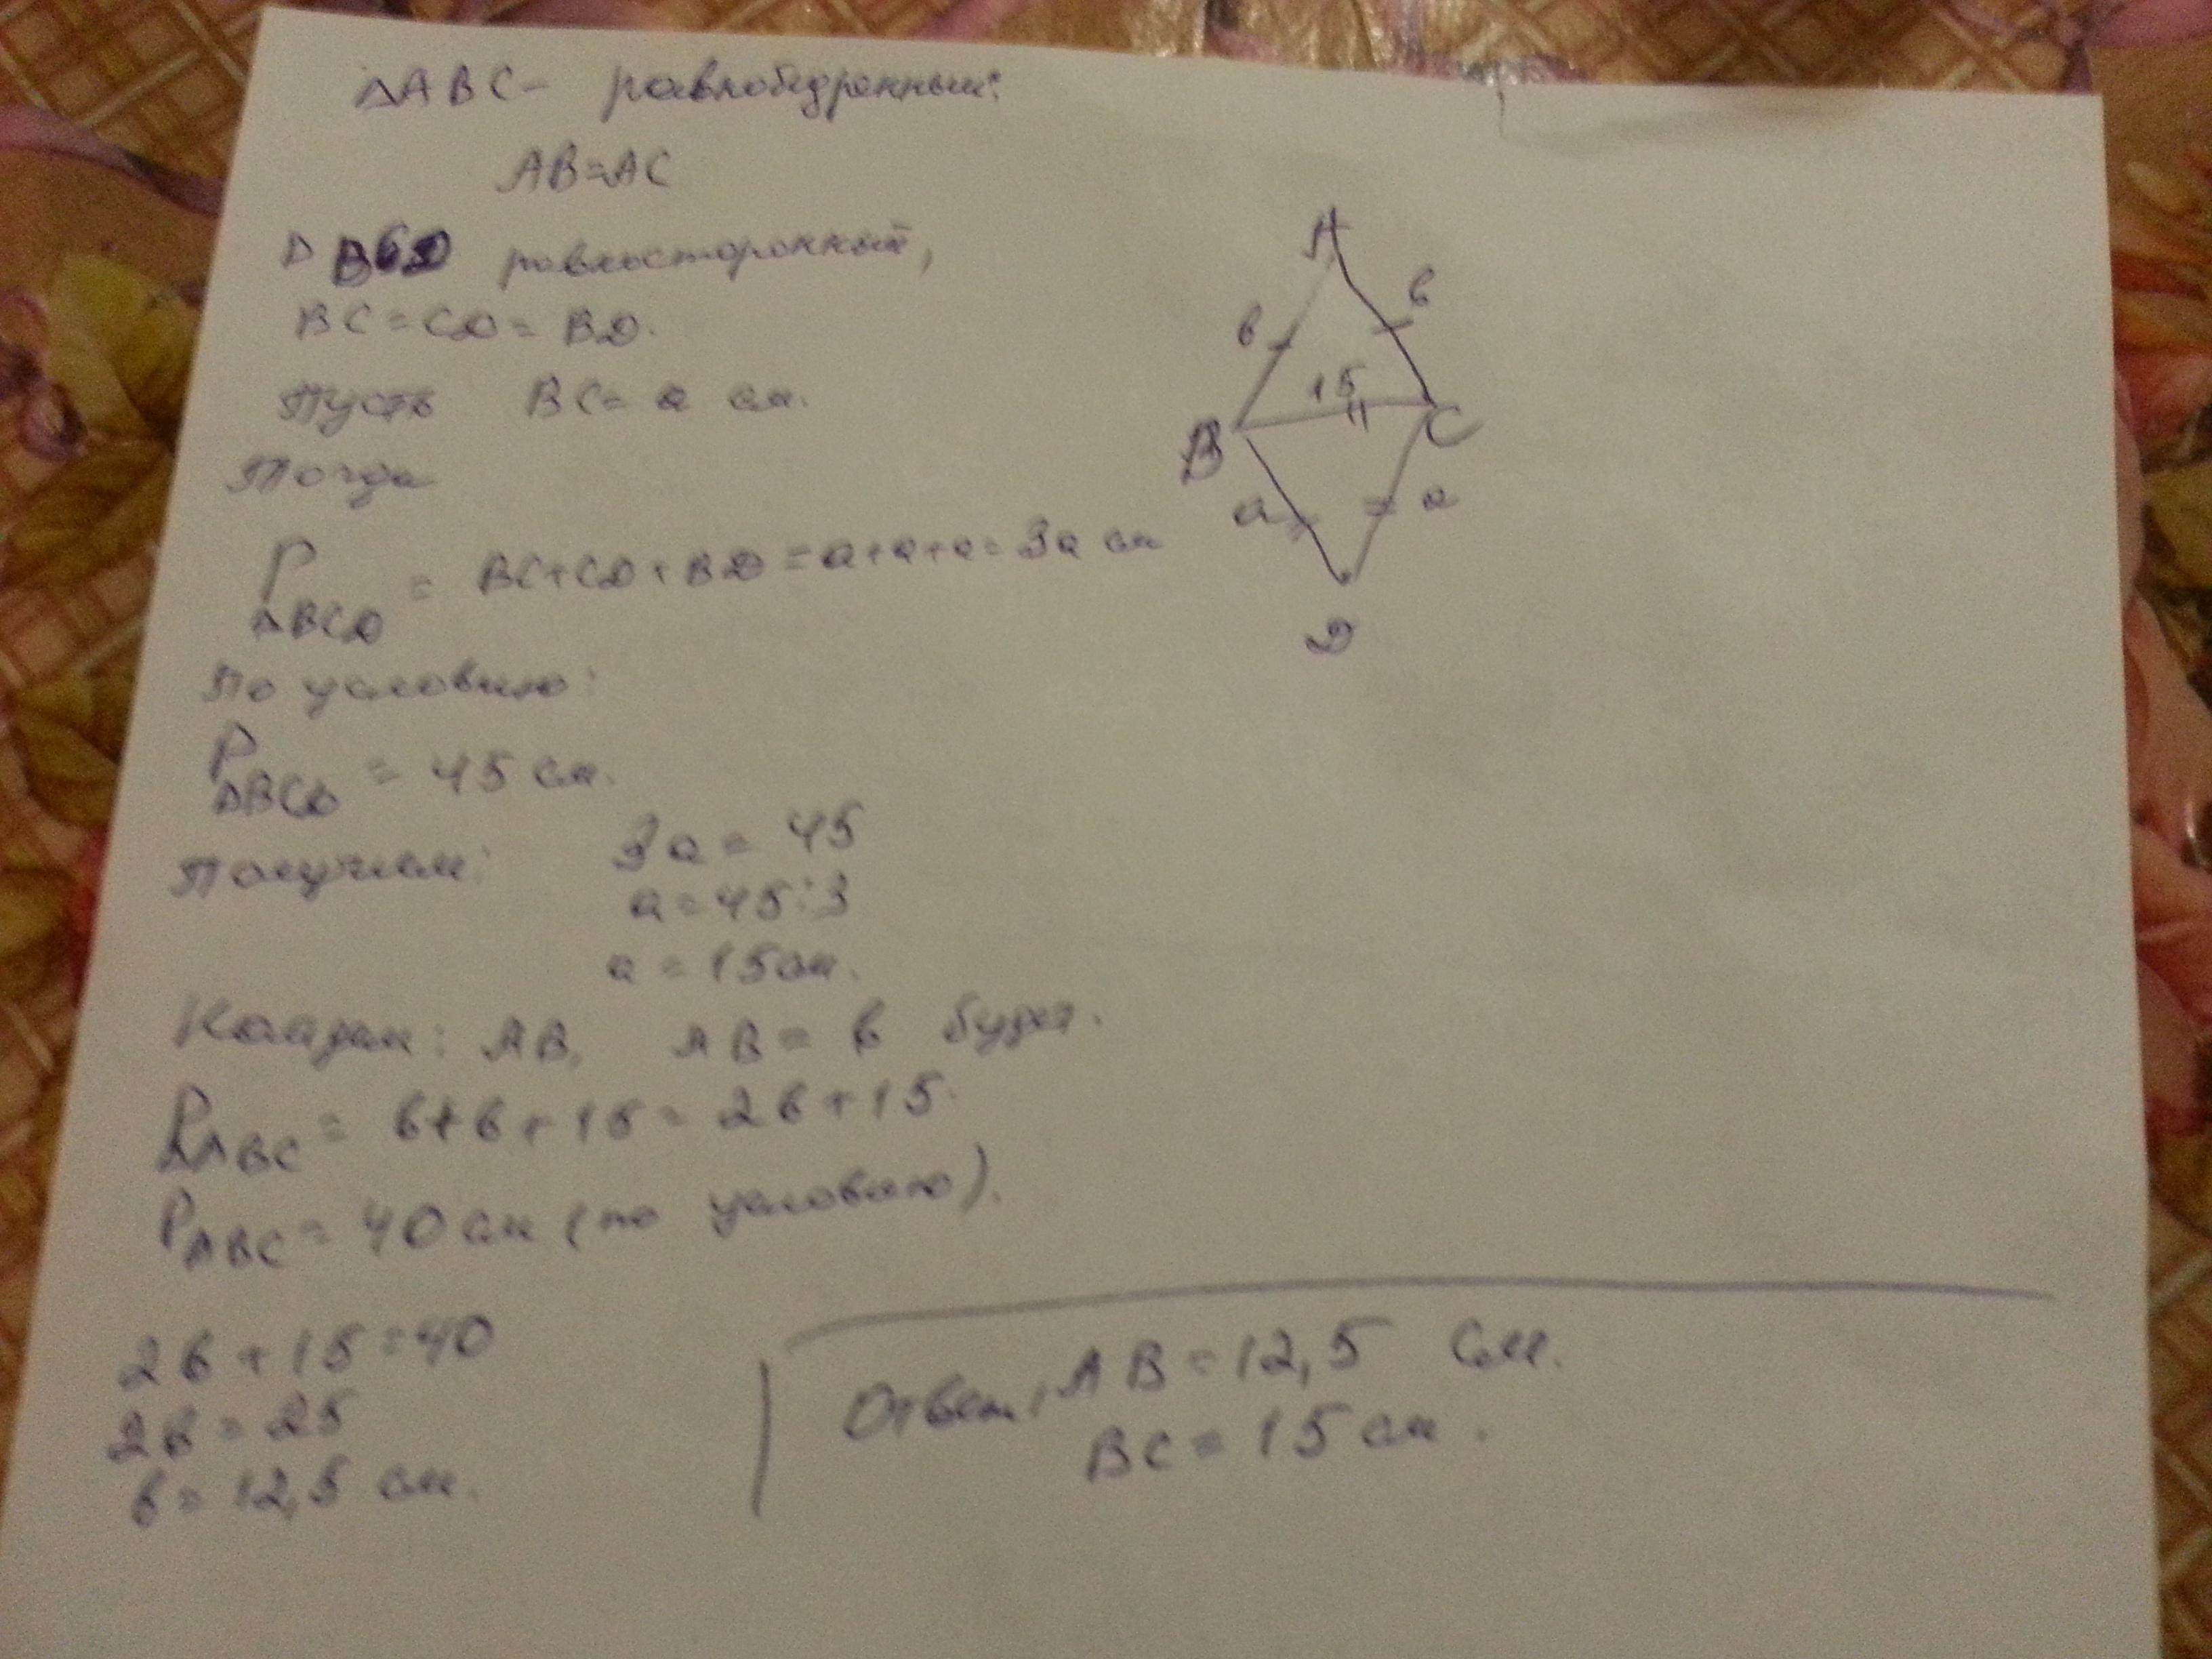 ΔABC - равнобедренный:
AB=AC
Δ BCD равносторонный,
BC = CD = BD.
Пусть BC = a см.
Тогда
P ΔBCD = BC+CD+BD = a+a+a = 3a см
По условию:
P ΔBCD = 45 см.
Получаем: 3a = 45
a = 45:3
a = 15 см.
Найдем: AB, AB = в будет.
P ΔABC = в+в+15 = 2в+15.
P ABC = 40 см (по условию).
2в+15=40
2в = 25
в = 12,5 см.
Ответ, AB = 12,5 см.
BC = 15 см.
A
в
в
15
B
C
a
a
D